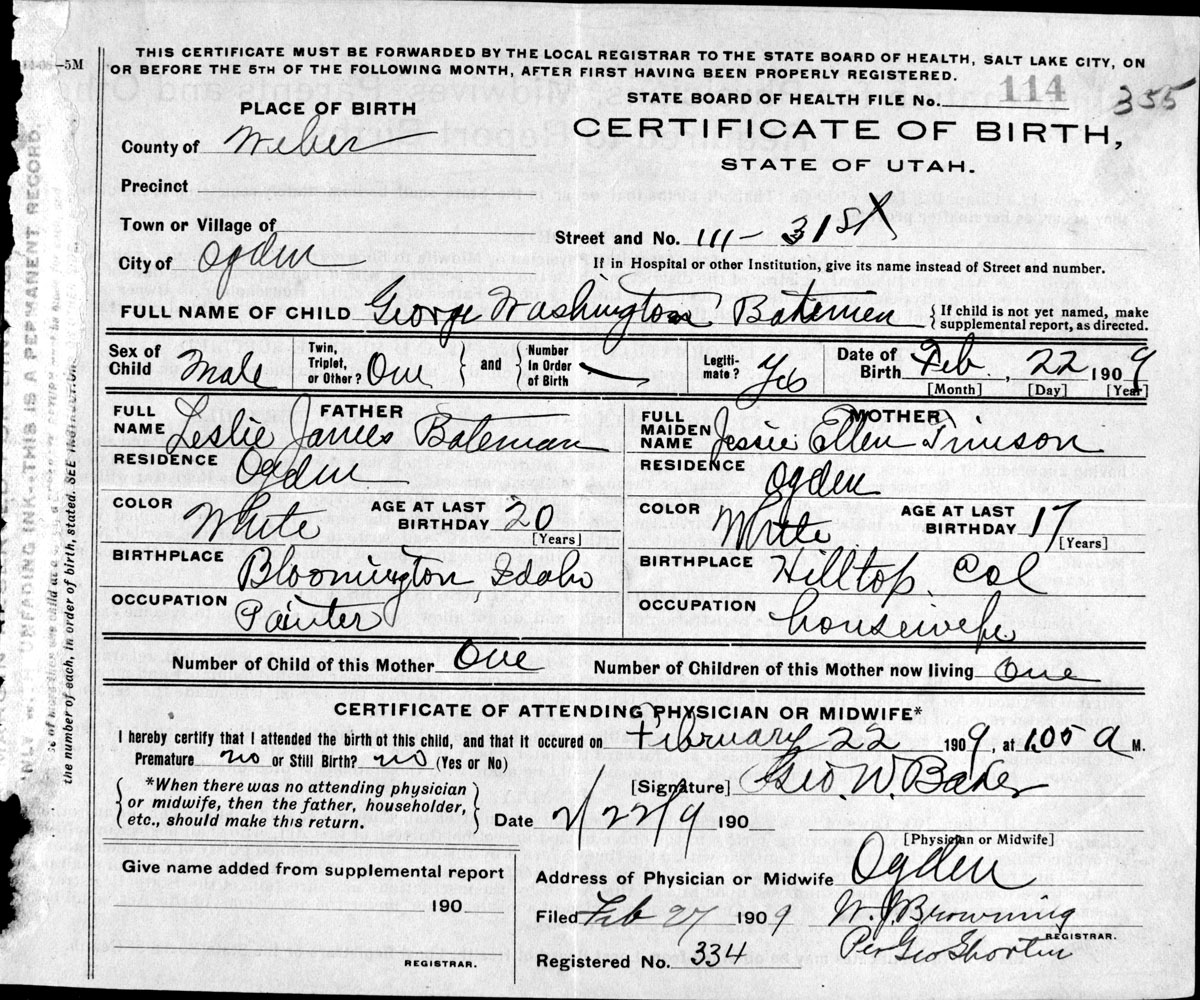 THIS CERTIFICATE MUST BE FORWARDED BY THE LOCAL REGISTRAR TO THE STATE BOARD OF HEALTH, SALT LAKE CITY, ON
OR BEFORE THE 5TH OF THE FOLLOWING MONTH, AFTER FIRST HAVING BEEN PROPERLY REGISTERED.
—5M
STATE BOARD OF HEALTH FILE No. 114 355
PLACE OF BIRTH
CERTIFICATE OF BIRTH,
STATE OF UTAH.
County of Weber
Precinct
Town or Village of
Street and No. 111 — 31st
City of Ogden
If in Hospital or other Institution, give its name instead of Street and number.
FULL NAME OF CHILD George Washington Batemen
{ If child is not yet named, make
supplemental report, as directed.
Sex of Child Male
Twin, Triplet, or Other? One } and { Number In Order of Birth —
Legiti-mate? Yes
Date of Birth Feb, 22 1909
[Month] [Day] [Year]
FATHER
FULL NAME Leslie James Bateman
RESIDENCE Ogden
COLOR White AGE AT LAST BIRTHDAY 20
[Years]
BIRTHPLACE Bloomington, Idaho
OCCUPATION Painter
MOTHER
FULL MAIDEN NAME Jessie Ellen
RESIDENCE Ogden
COLOR White AGE AT LAST BIRTHDAY 17
[Years]
BIRTHPLACE Hilltop, Col
OCCUPATION housewife
Number of Child of this Mother One
Number of Children of this Mother now living One
CERTIFICATE OF ATTENDING PHYSICIAN OR MIDWIFE*
I hereby certify that I attended the birth ot this child, and that it occured on February 22 1909, at 1.05 a M.
Premature no or Still Birth? no (Yes or No)
{ *When there was no attending physician
or midwife, then the father, householder,
etc., should make this return. }
[Signature] Geo. W. Baker
Date 2/22/9 190
[Physician or Midwife]
Address of Physician or Midwife Ogden
Give name added from supplemental report
190
REGISTRAR.
Filed Feb 27 1909 W. J. Browning
REGISTRAR.
Per Geo
Registered No. 334
THIS IS A PERMANENT RECORD.
the number of each, in order of birth, stated. SEE INSTRUCTION